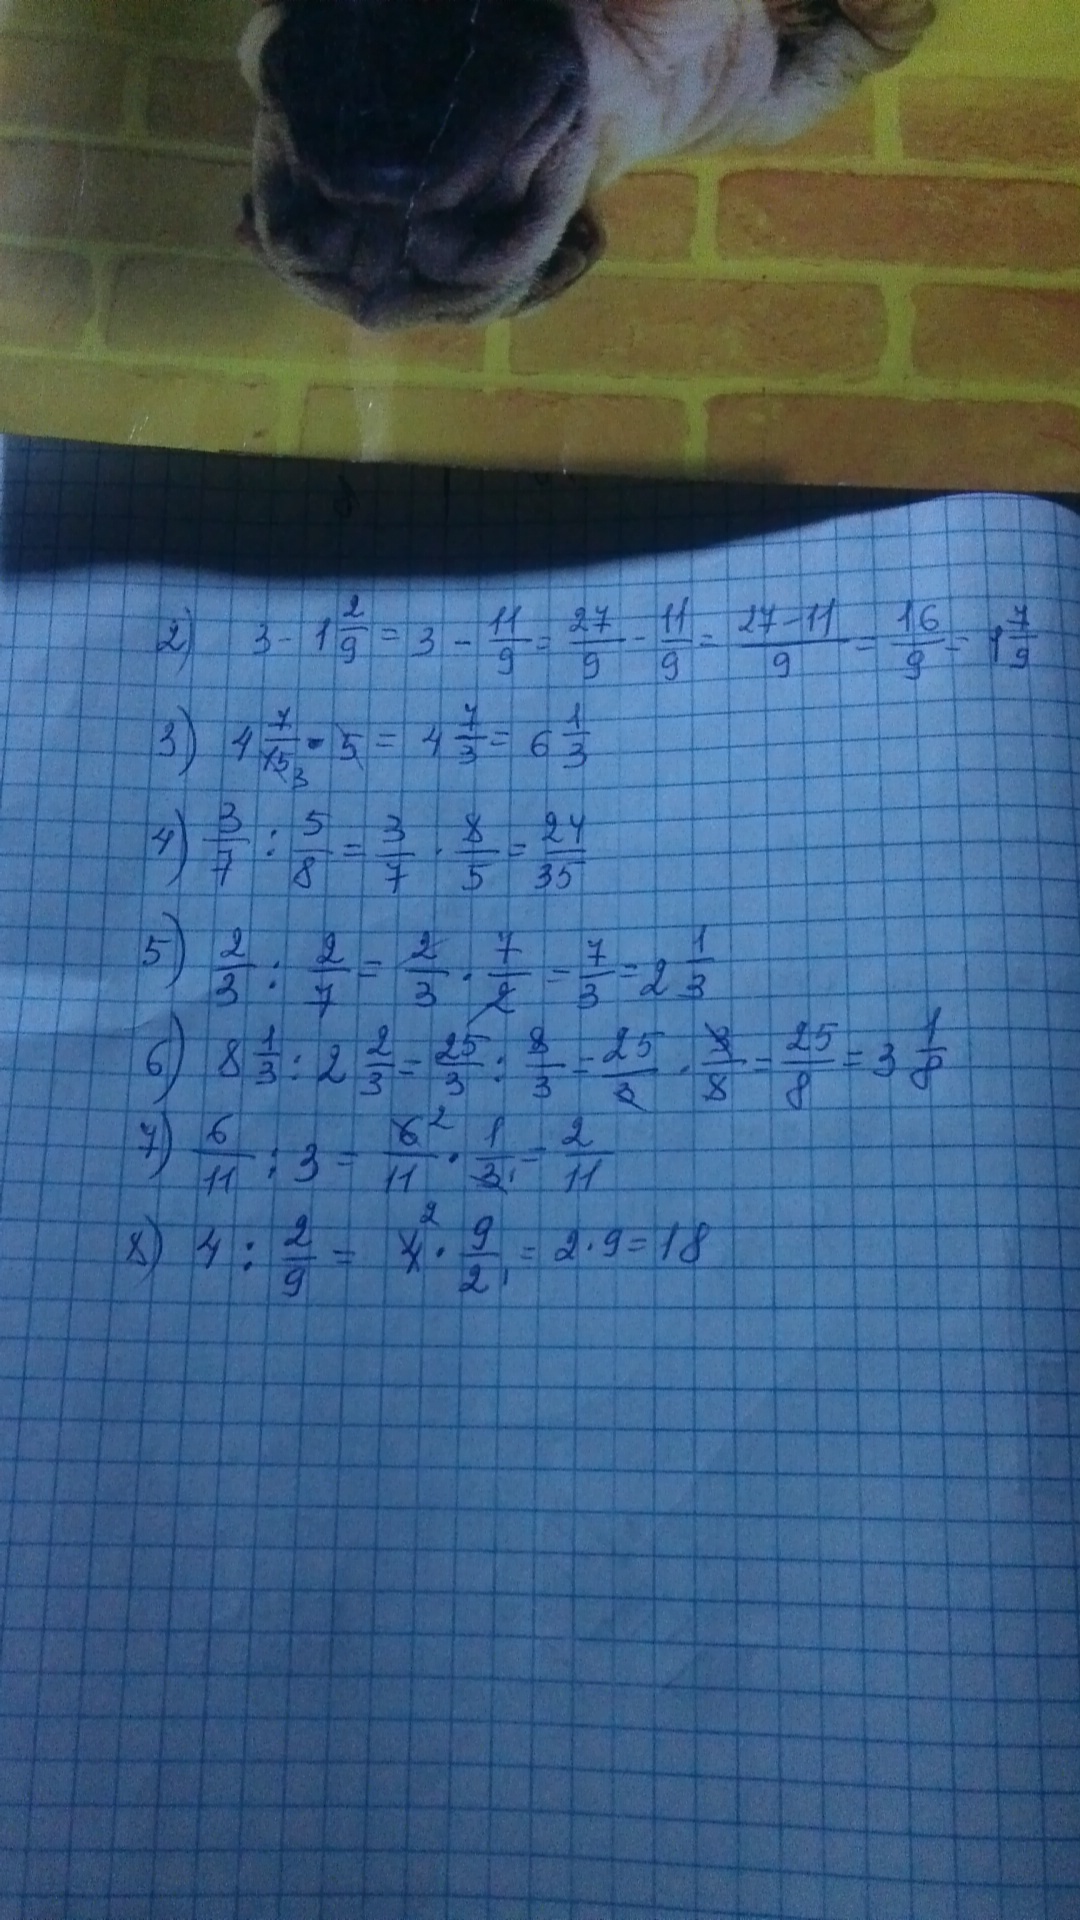 2) 3 - 1 2/9 = 3 - 11/9 = 27/9 - 11/9 = 27-11/9 = 16/9 = 1 7/9
3) 4 7/15 3 · 5 = 4 7/3 = 6 1/3
4) 3/7 : 5/8 = 3/7 · 8/5 = 24/35
5) 2/3 : 2/7 = 2/3 · 7/2 = 7/3 = 2 1/3
6) 8 1/3 : 2 2/3 = 25/3 : 8/3 = 25/3 · 3/8 = 25/8 = 3 1/8
7) 6/11 : 3 = 6 2/11 · 1/3 1 = 2/11
8) 4 : 2/9 = 4 2 · 9/2 1 = 2 · 9 = 18